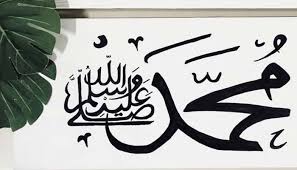 مُحَمَّد صلى الله عليه وسلم